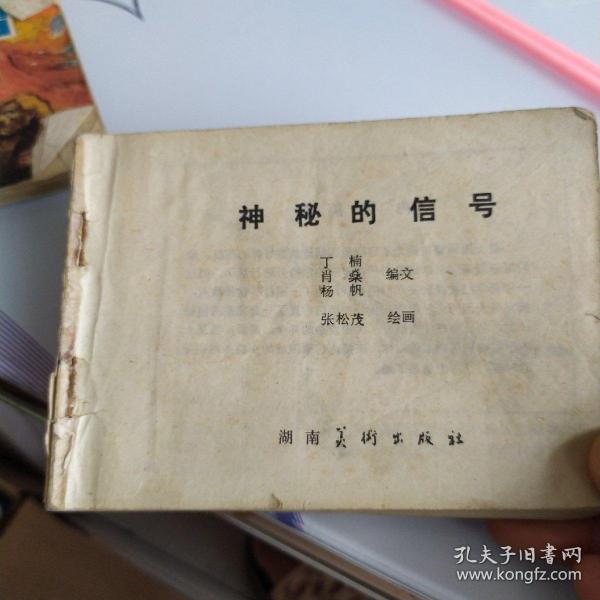 神秘的信号
丁楠
肖燊 编文
杨帆
张松茂 绘画
湖南美术出版社
孔夫子旧书网
www.kongfz.com